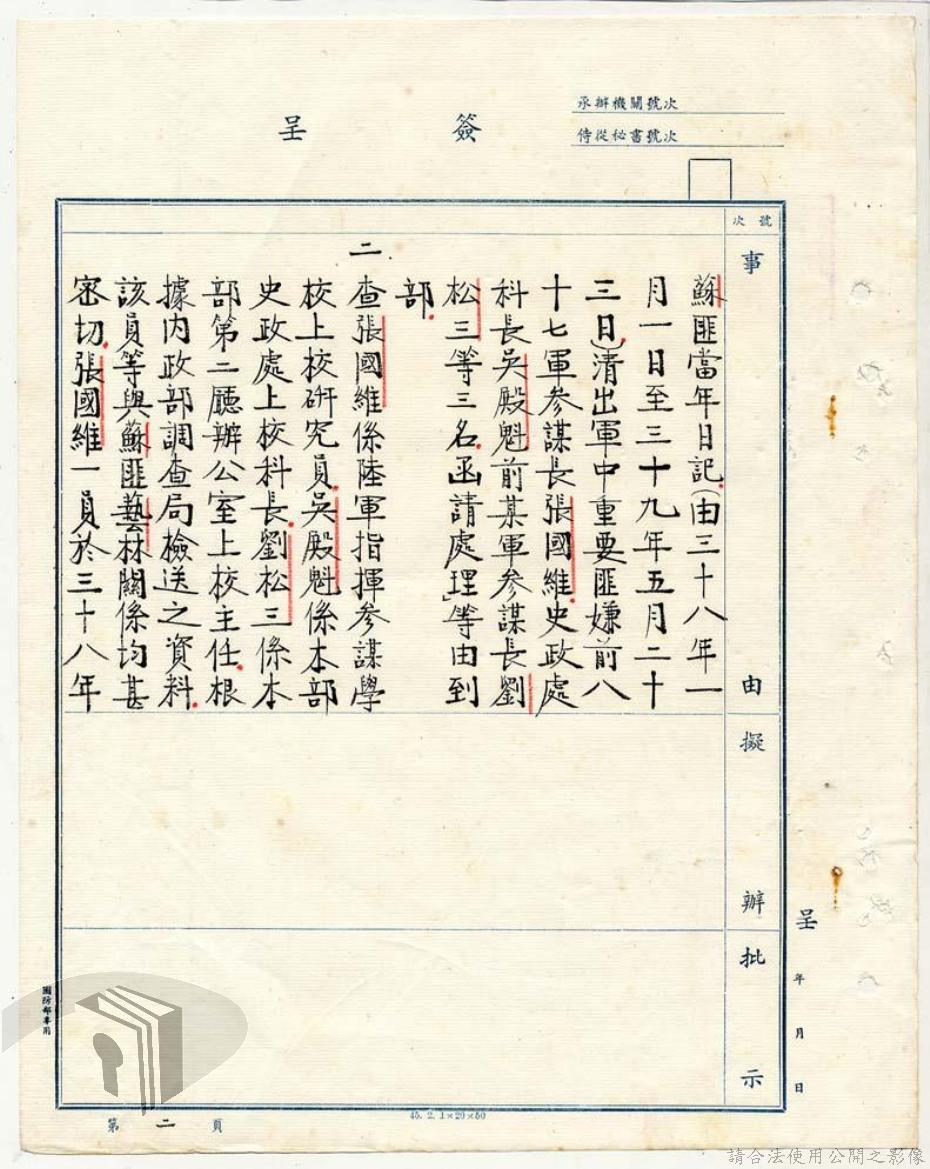 承辦機關號次
侍從秘書號次
簽呈
號次
事由
擬辦
批示
蘇匪當年日記(由三十八年一
月一日至三十九年五月二十
三日)清出軍中重要匪嫌前八
十七軍參謀長張國維.史政處
科長吳殿魁.前某軍參謀長劉
松三等三名.函請處理」等由到
部.
二
查張國維係陸軍指揮參謀學
校上校研究員.吳殿魁係本部
史政處上校科長.劉松三係本
部第二廳辦公室上校主任.根
據內政部調查局檢送之資料.
該員等與蘇匪藝林關係均甚
密切.張國維一員於三十八年
呈
年月日
國防部專用
第二頁
45. 2. 1×20×50
請合法使用公開之影像